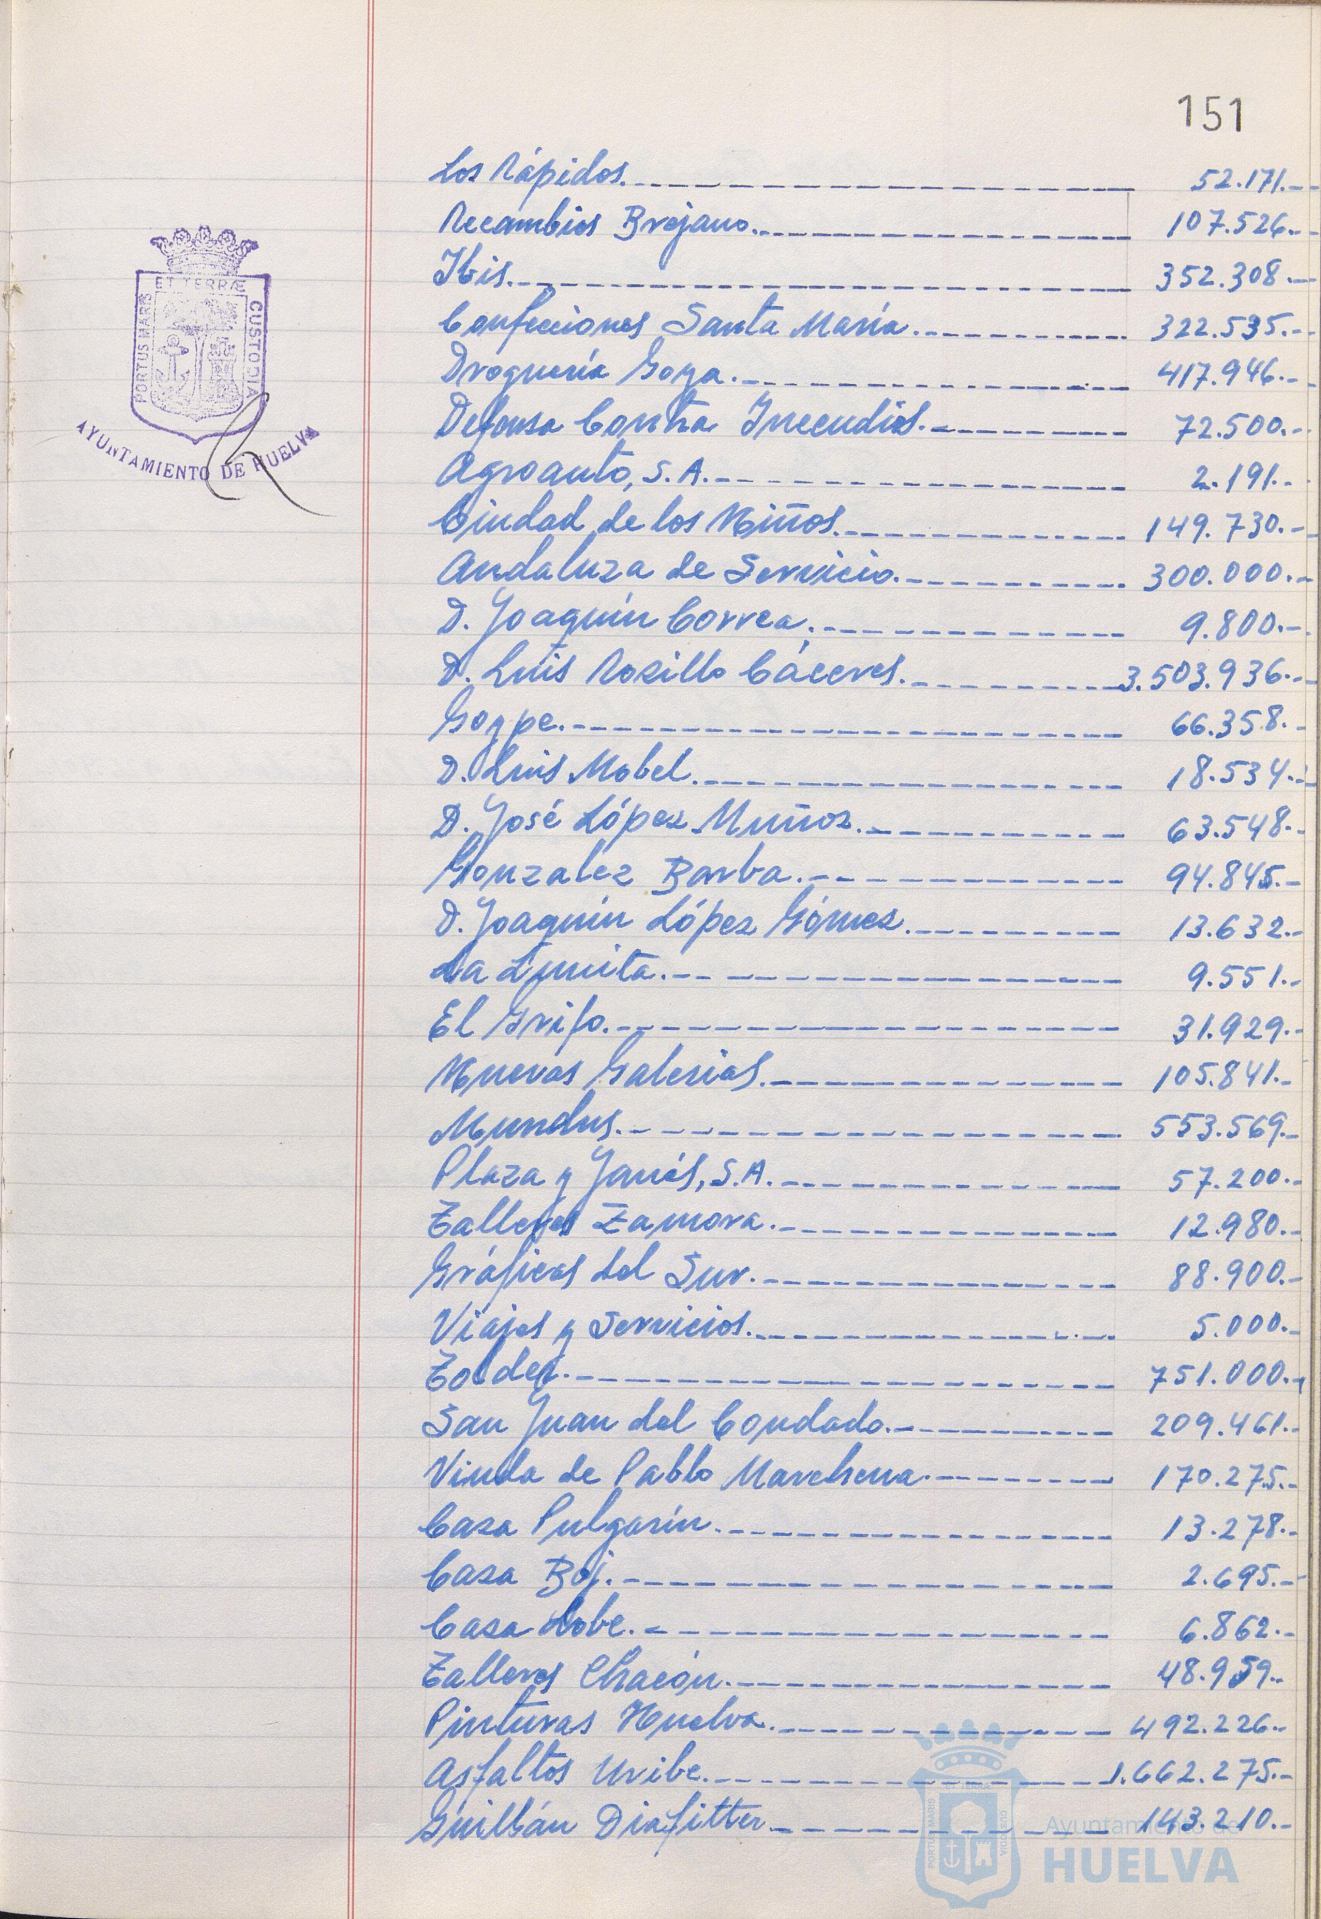 151
Los Rápidos. 52.171.-
Recambios Brejano. 107.526.-
Ibis. 352.308.-
Confecciones Santa María. 322.535.-
Droguería Goya. 417.946.-
Defensa Contra Incendios. 72.500.-
Agroauto, S.A. 2.191.-
Ciudad de los Niños. 149.730.-
Andaluza de Servicio. 300.000.-
D. Joaquín Correa. 9.800.-
D. Luis Rosillo Cáceres. 3.503.936.-
Goype. 66.358.-
D. Luis Mobel. 18.534.-
D. José López Muñoz. 63.548.-
Gonzalez Barba. 94.845.-
D. Joaquín López Gómez. 13.632.-
La 9.551.-
El Grifo. 31.929.-
Nuevas Galerias. 105.841.-
Mundus. 553.569.-
Plaza y Janés, S.A. 57.200.-
Talleres Zamora. 12.980.-
Gráficas del Sur. 88.900.-
Viajes y Servicios. 5.000.-
751.000.-
San Juan del Condado. 209.461.-
Viuda de Pablo Marchena. 170.275.-
Casa Pulgarín. 13.278.-
Casa Boj. 2.695.-
Casa Lobe. 6.862.-
Talleres Chacón. 48.959.-
Pinturas Huelva. 492.226.-
Asfaltos Uribe. 1.662.275.-
Guillán Diafitter 143.210.-
PORTUS MARIS ET TERRÆ CUSTODIA
AYUNTAMIENTO DE HUELVA
PORTUS MARIS ET TERRÆ CUSTODIA
Ayuntamiento de
HUELVA